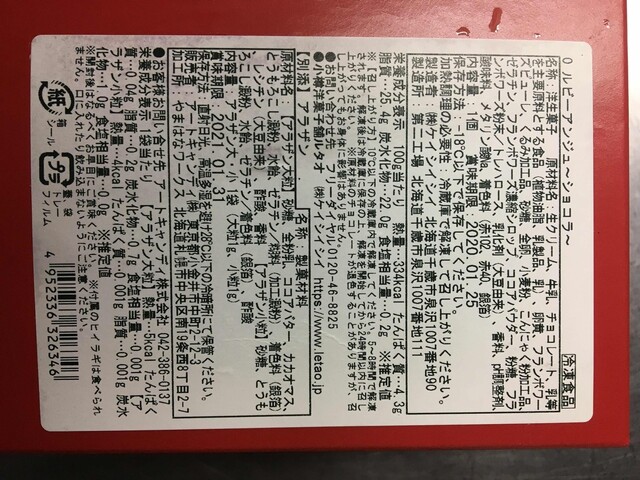 冷凍食品
０ルビーアンジュ～ショコラ～
名称:洋生菓子 原材料名:生クリーム、牛乳、チョコレート、乳等
を主要原料とする食品(植物油脂、乳製品)、乳、卵黄、フランボワー
ズピューレ、くるみ加工品、砂糖、全卵、小麦粉、こんにゃく粉加工品、
ゼラチン、フランボワーズ濃縮シロップ、ココアパウダー、粉糖、フラ
ンボワーズ粉末、トレハロース、乳化剤(大豆由来)、香料、pH調整剤、
酸味料、メタリン酸Na、着色料(赤102、赤40、銀箔)
内容量:1個 賞味期限 2020.01.25
保存方法:-18℃以下で保存してください。
加熱調理の必要性:冷蔵庫で解凍して召し上がりください。
製造者:(株)ケイシイシイ 北海道千歳市泉沢1007番地90
製造所:第二工場 北海道千歳市泉沢1007番地111
栄養成分表示 100g当たり 熱量…334kcal たんぱく質…4.3g
脂質…25.4g 炭水化物…22.0g 食塩相当量…0.2g ※推定値
※召し上がり方】10℃以下の冷蔵庫内で解凍してください。5～8時間で解凍
されます。解凍後は冷蔵庫に保存の上、解凍を開始してから24時間以内に召し
上がりください。
しがってもお身体に影響はありません。
●お問い合わせ先 フリーダイヤル0120-46-8825
●小樽洋菓子舗ルタオ (株)ケイシイシイ https://www.letao.jp
【別添】アラザン 名称:製菓材料
原材料名:【アラザン大粒】砂糖、全粉乳、ココアバター、カカオマス、
とうもろこし澱粉、水飴、ゼラチン/粉料(加工澱粉)、着色料(銀箔)
、レシチン(大豆由来)、酢酸、香料 【アラザン小粒】砂糖、とうも
ろこし澱粉、水飴、ゼラチン/着色料(銀箔)、酢酸
内容量:アラザン大、小 1袋(大粒1g、小粒1g)
賞味期限 2021.01.31
保存方法:直射日光、高温多湿を避け28℃以下の冷暗所にて保管ください。
販売者:アートキャンディ(株) 東京都小金井市中町2-11-3
加工所:やまはなワークス 北海道札幌市中央区南十条西8丁目2-7
●お客様お問い合せ先 アートキャンディ株式会社 042-386-0137
栄養成分表示 1袋当たり 【アラザン大粒】熱量…5kcal たんぱく
質…0.04g 脂質…0.2g 炭水化物…0.7g 食塩相当量…0.001g 【ア
ラザン小粒】熱量…4kcal たんぱく質…0.001g 脂質…0.001g 炭水
化物…1.0g 食塩相当量…0.0g ※推定値
※開封後はなるべくお早目にご賞味ください。※付属のヒイラギは食べられ
ません。口に入れたり飲み込まないでください。
紙
箱
シール
プラ
外袋
トレー
フィルム
4952336132634 6